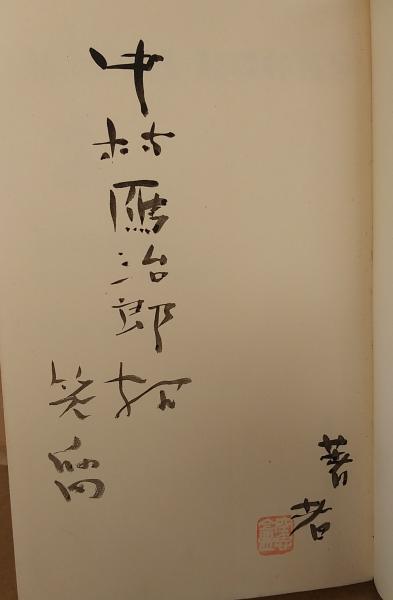 中村鴈治郎
笑留
著者